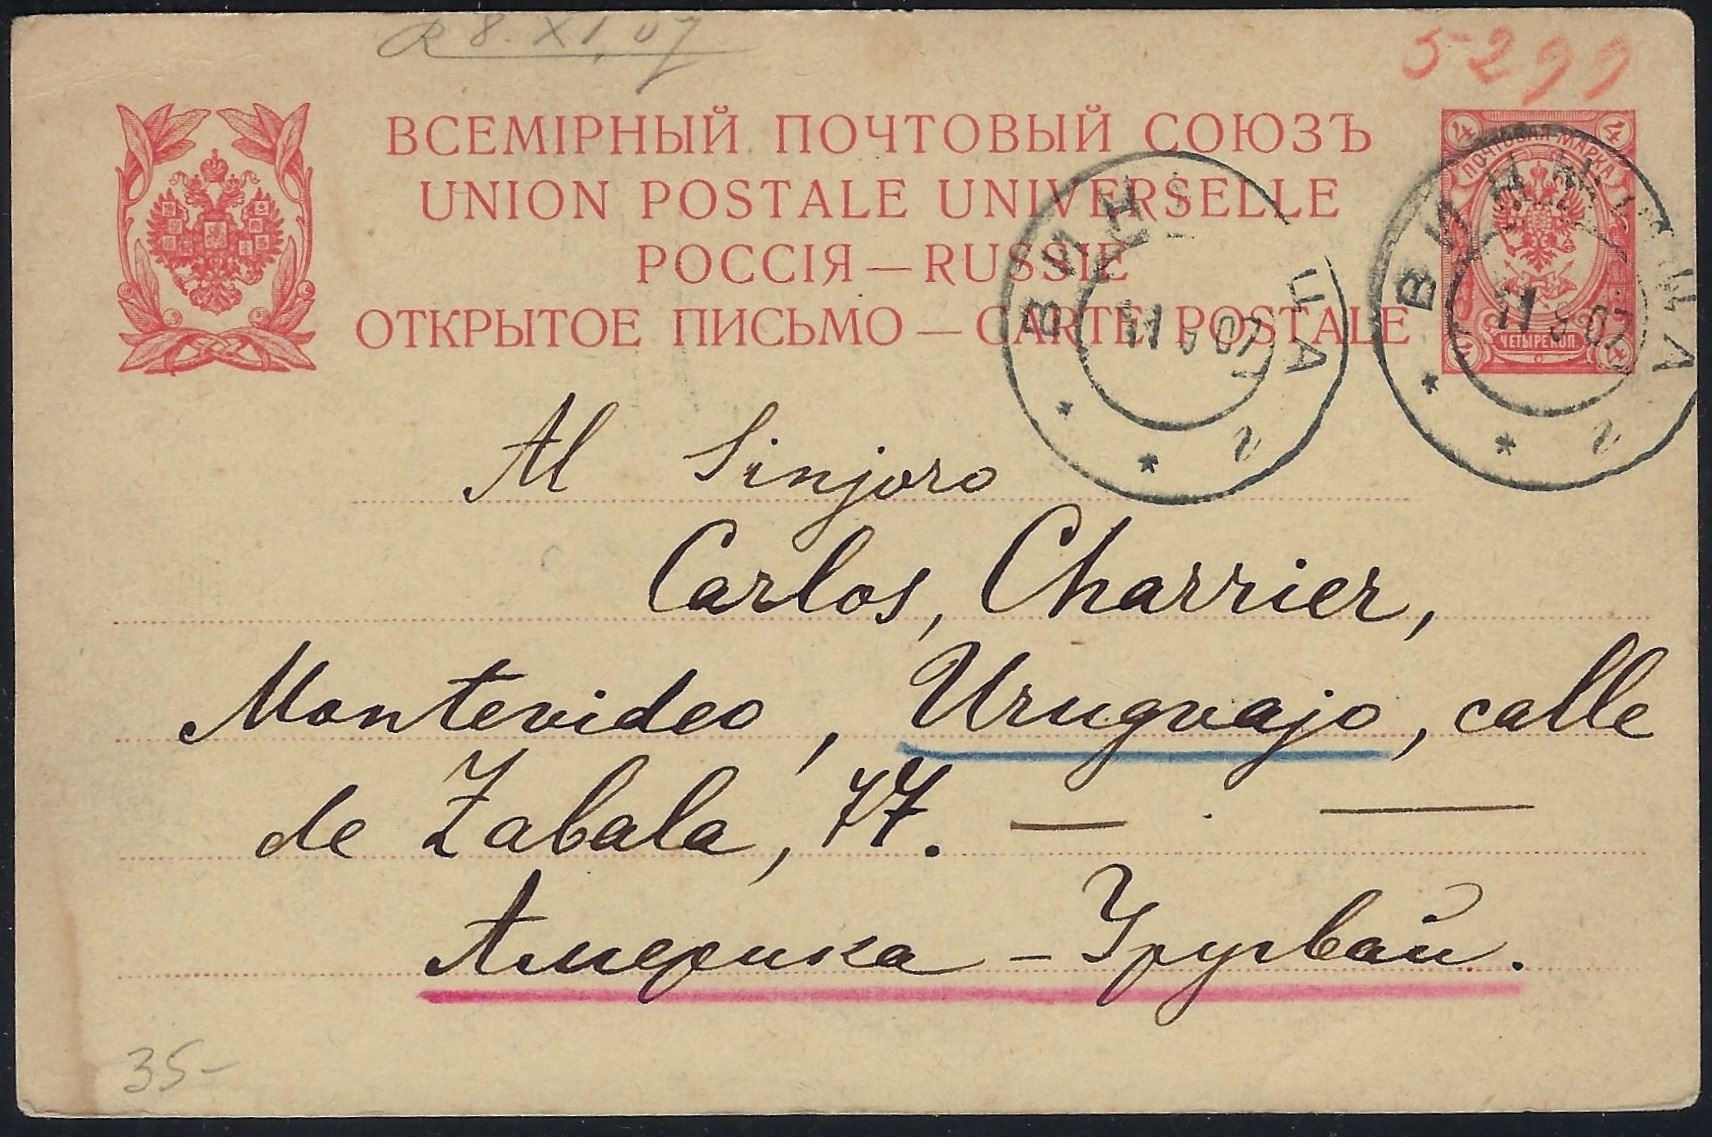 R 8. XI. 07
5299
ВСЕМІРНЫЙ ПОЧТОВЫЙ СОЮЗЪ
UNION POSTALE UNIVERSELLE
РОССІЯ — RUSSIE
ОТКРЫТОЕ ПИСЬМО — CARTE POSTALE
4 4
ПОЧТОВАЯ МАРКА
ЧЕТЫРЕ КОП.
4
ВИННИЦА
07
ВИННИЦА
11 9 07
Al Sinjoro
Carlos, Charrier,
Montevideo, Urugvajo, calle
de Zabala, 77. — . —
Америка – Уругвай.
35-